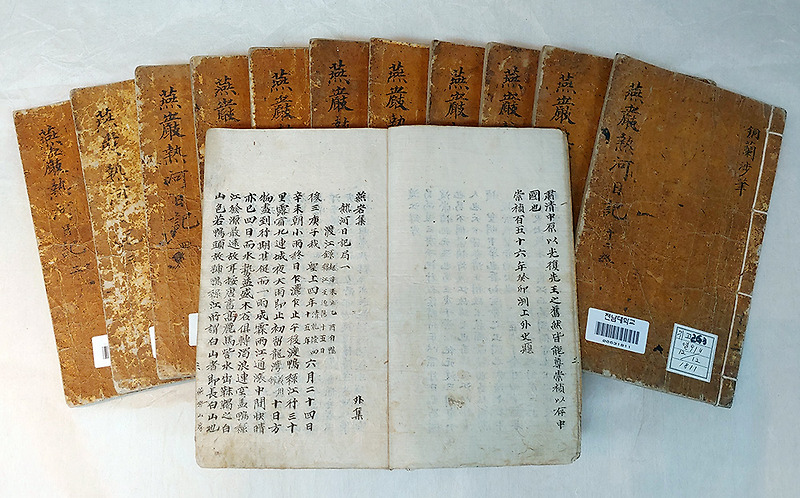 燕巖熱河日記
燕巖熱河日記
燕巖熱河日記
燕巖
燕巖熱
燕巖熱
燕巖熱
燕巖熱
燕巖熱
燕巖熱
燕巖熱河日記
銅蘭涉筆
전남대학교
肅清中原以光復先王之舊 皆能尊崇禎以存中
國也
崇禎百五十六年癸卯洌上外史題
燕岩集 外集
熱河日記局一
渡江錄 起辛未止乙酉自鴨綠江至遼陽十五日
後三庚子我 聖上四年 清乾隆四十五年 六月二十四日
辛未朝小雨終日乍灑乍止午後渡鴨綠江行三十
里露宿九連城夜大雨即止初留龍灣 十日方
物盡到行期甚促而一雨成霖兩江通漲中間快晴
亦已四日而水勢益盛木石俱轉濁浪連空蓋鴨綠
江發源最遠故耳按唐書高麗馬訾水出靺鞨之白
山色若鴨頭故號鴨綠江所謂白山者即長白山也